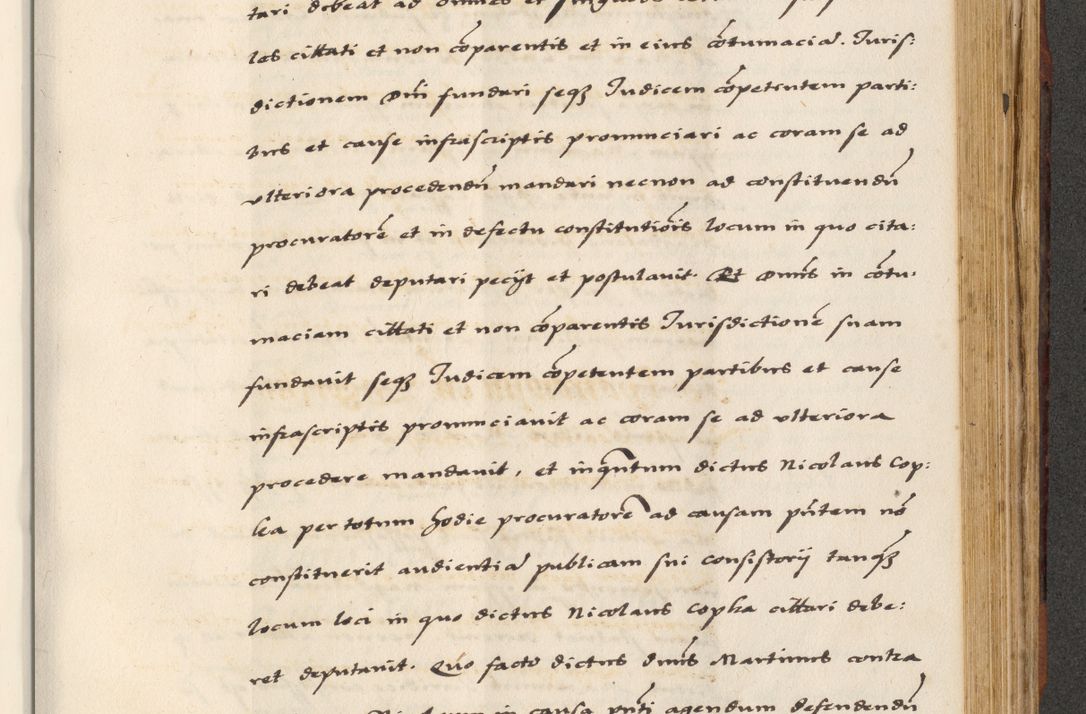 tari debeat ad omnes et singulos
les cittati et non cōparentis et in eius cōtumaciā. Iuris:
dictionem Dni fundari seqȝ Iudicem cōpetentem parti:
bus et cause infrascriptis pronunciari ac coram se ad
ulteriora procedendū mandari necnon ad constituendū
procuratorē et in defectu constitutiōis locum in quo cita:
ri debeat deputari peciit et postulavit. Et Dnus in cōtu:
maciam cittati et non cōparentis Iurisdictionē suam
fundavit seqȝ Iudicem cōpetentem partibus et cause
infrascriptis pronunciavit ac coram se ad ulteriora
procedere mandavit, et inqūntum dictus Nicolaus Cop:
ka per totum hodie procuratorē ad causam pn̄tem nō
constituerit audientiā publicam sui consistorij tanqȝ
locum loci in quo dictus Nicolaus Copka cittari debe:
ret deputavit. Quo facto dictus Dnus Martinus contra
in causa pn̄ti agendum defendendū